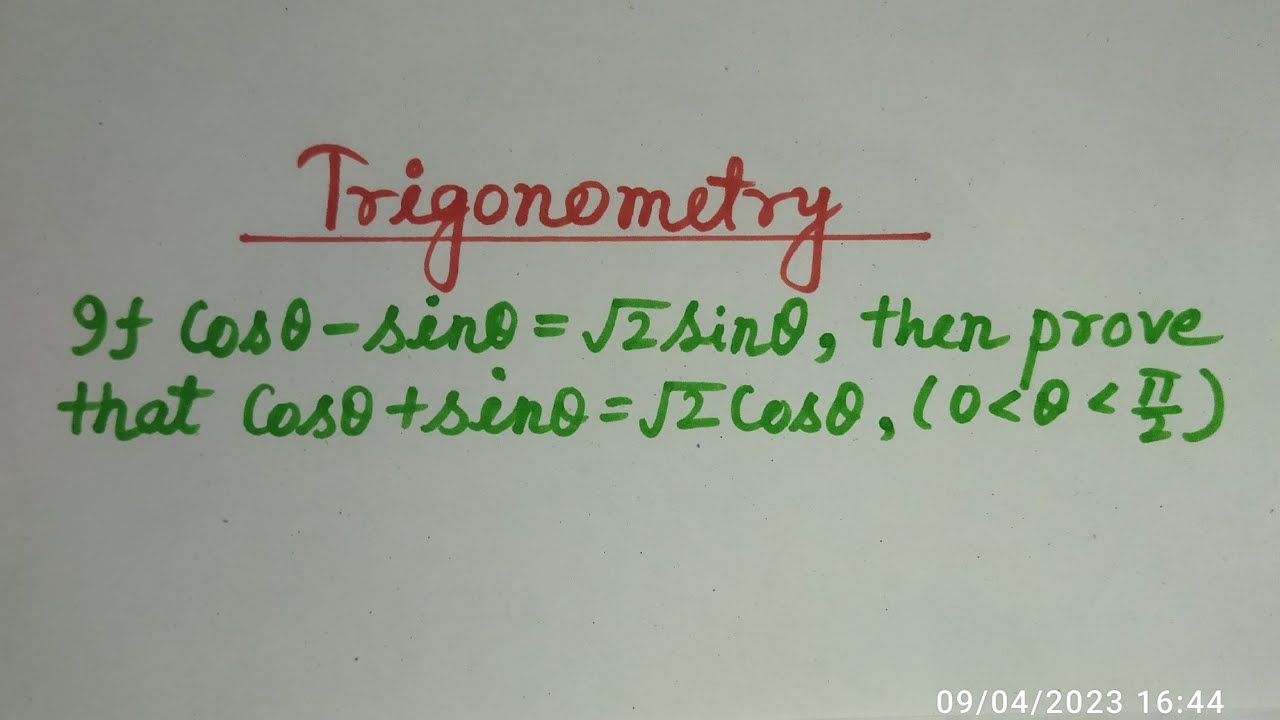 Trigonometry
If cosθ-sinθ=√2sinθ, then prove
that cosθ+sinθ=√2cosθ, (0<θ<π/2)
09/04/2023 16:44